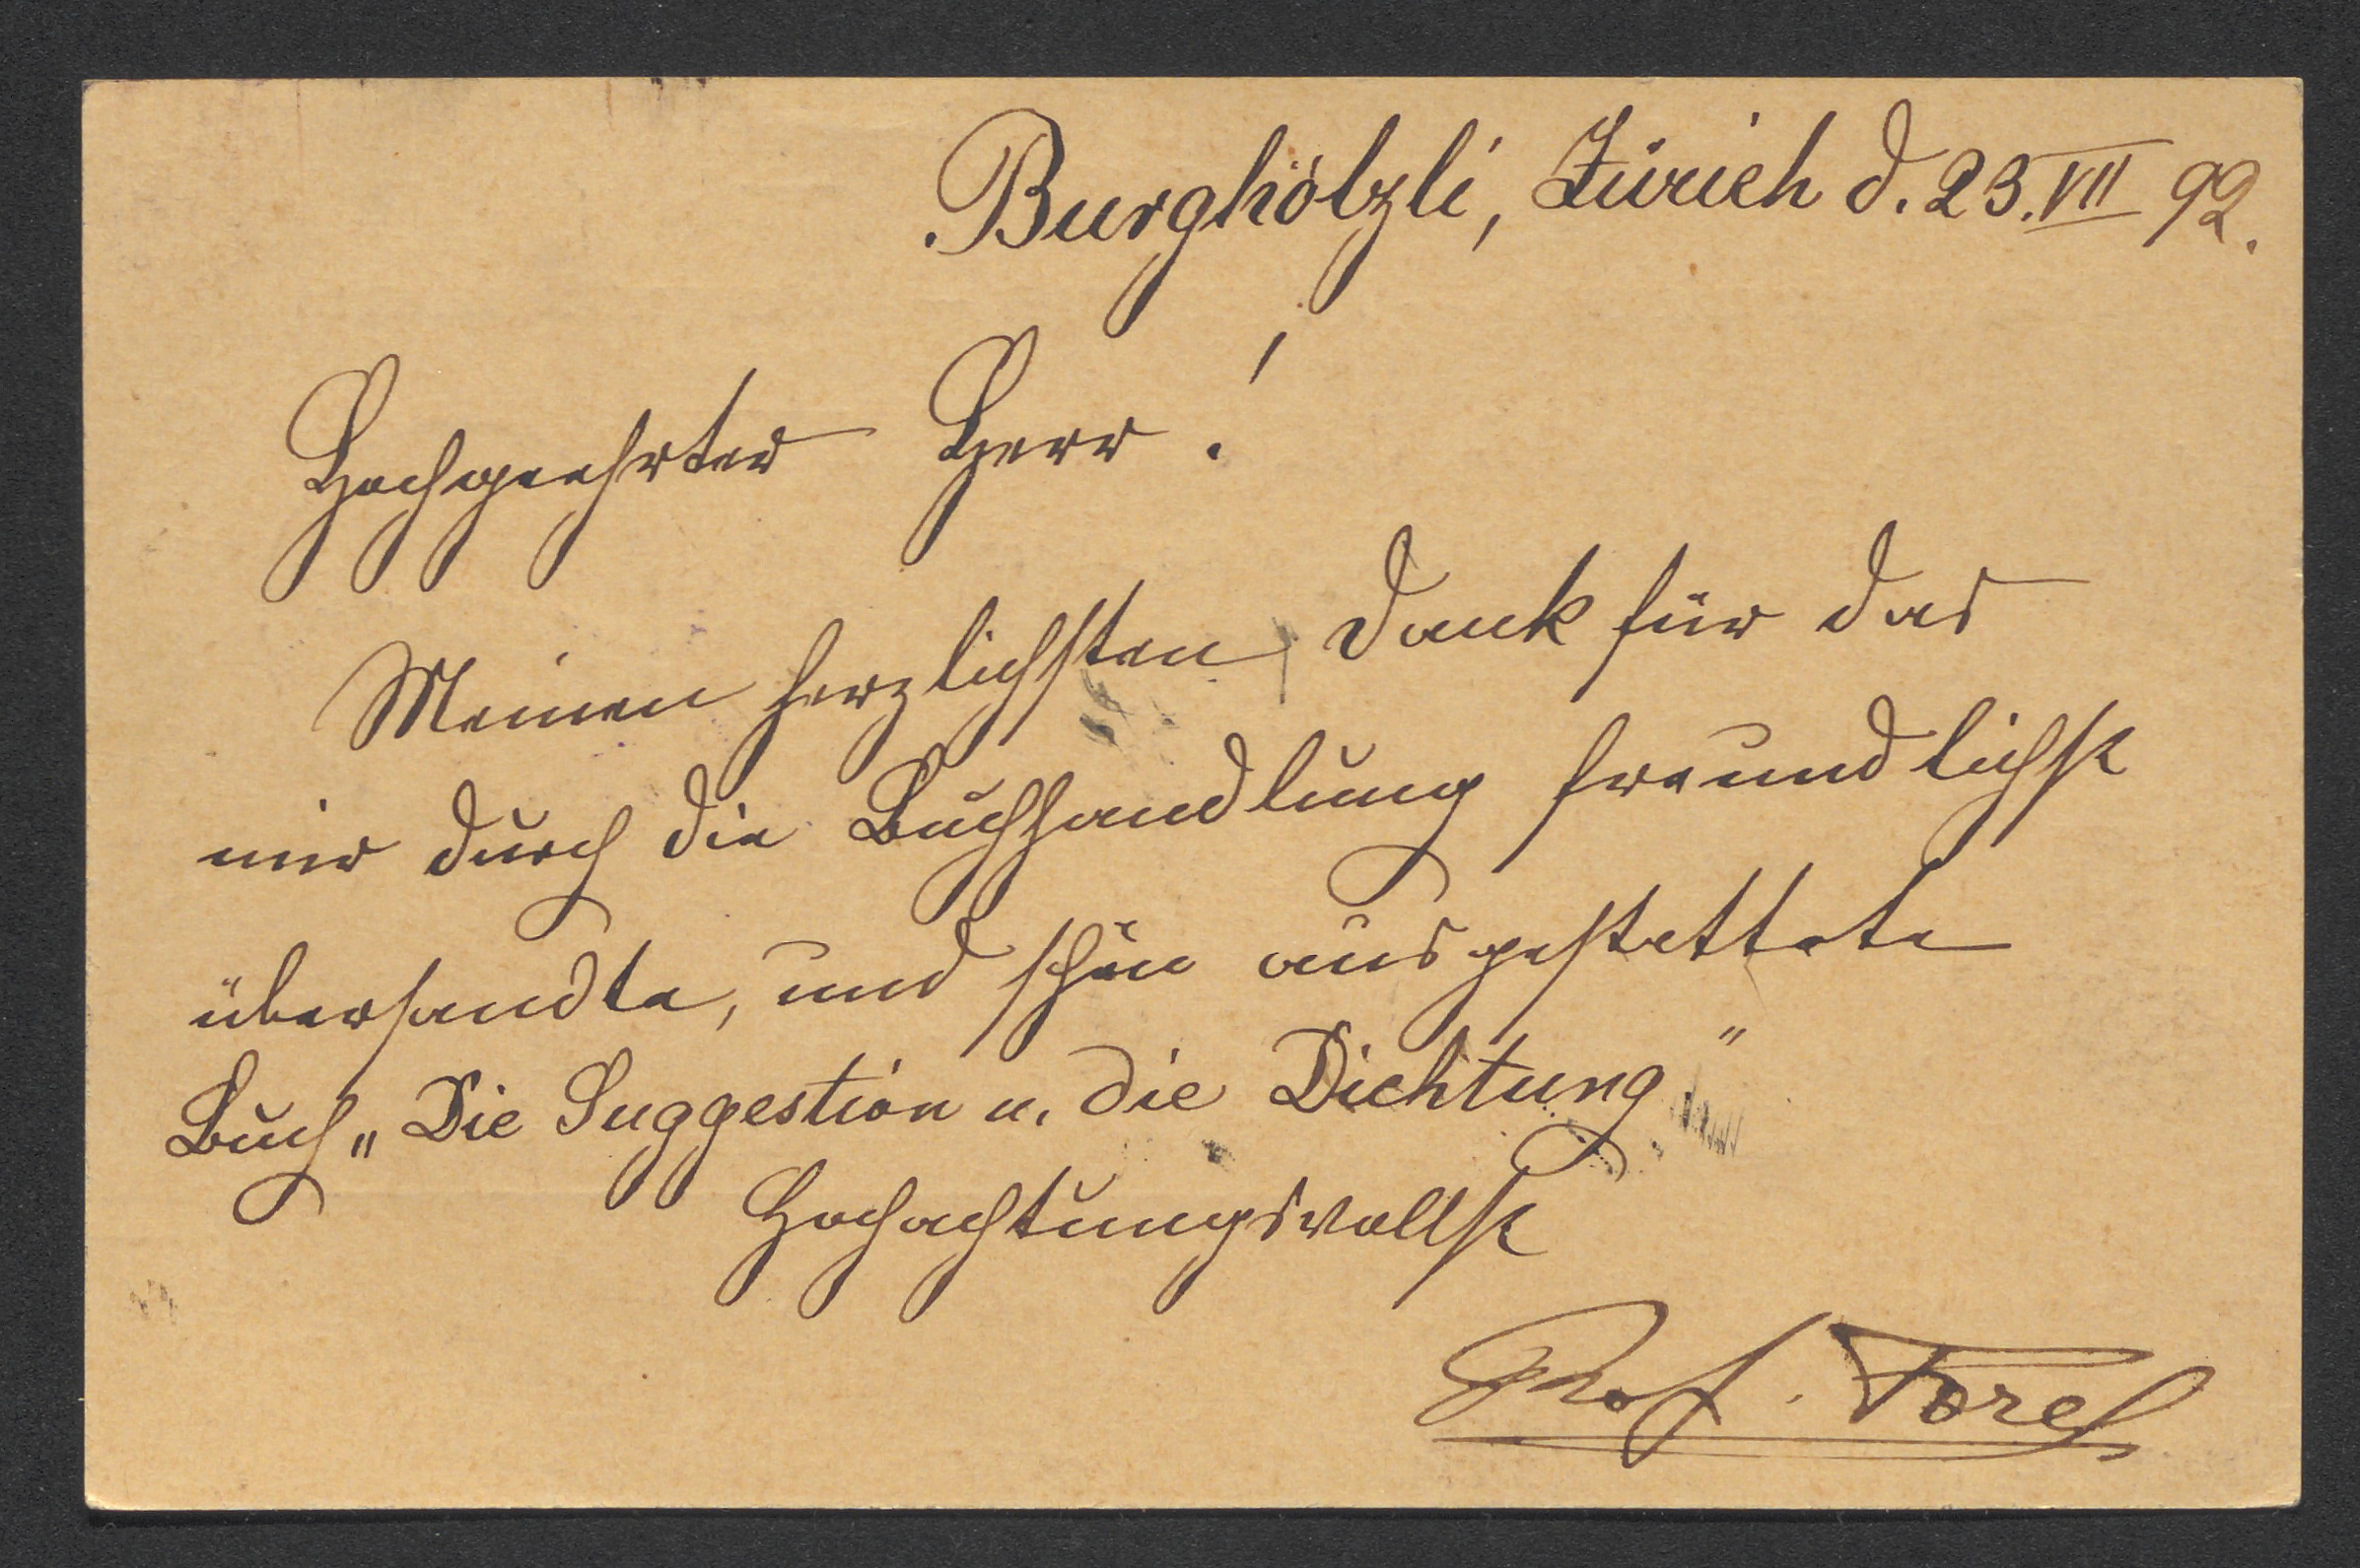 Burghölzli, Zürich d. 23. VII 92.
Hochgeehrter Herr!
Meinen herzlichsten Dank für das
mir durch die Buchhandlung freundlichst
übersandte, und schön ausgestattete
Buch „Die Suggestion u. die Dichtung"
Hochachtungsvollst
Prof. Forel